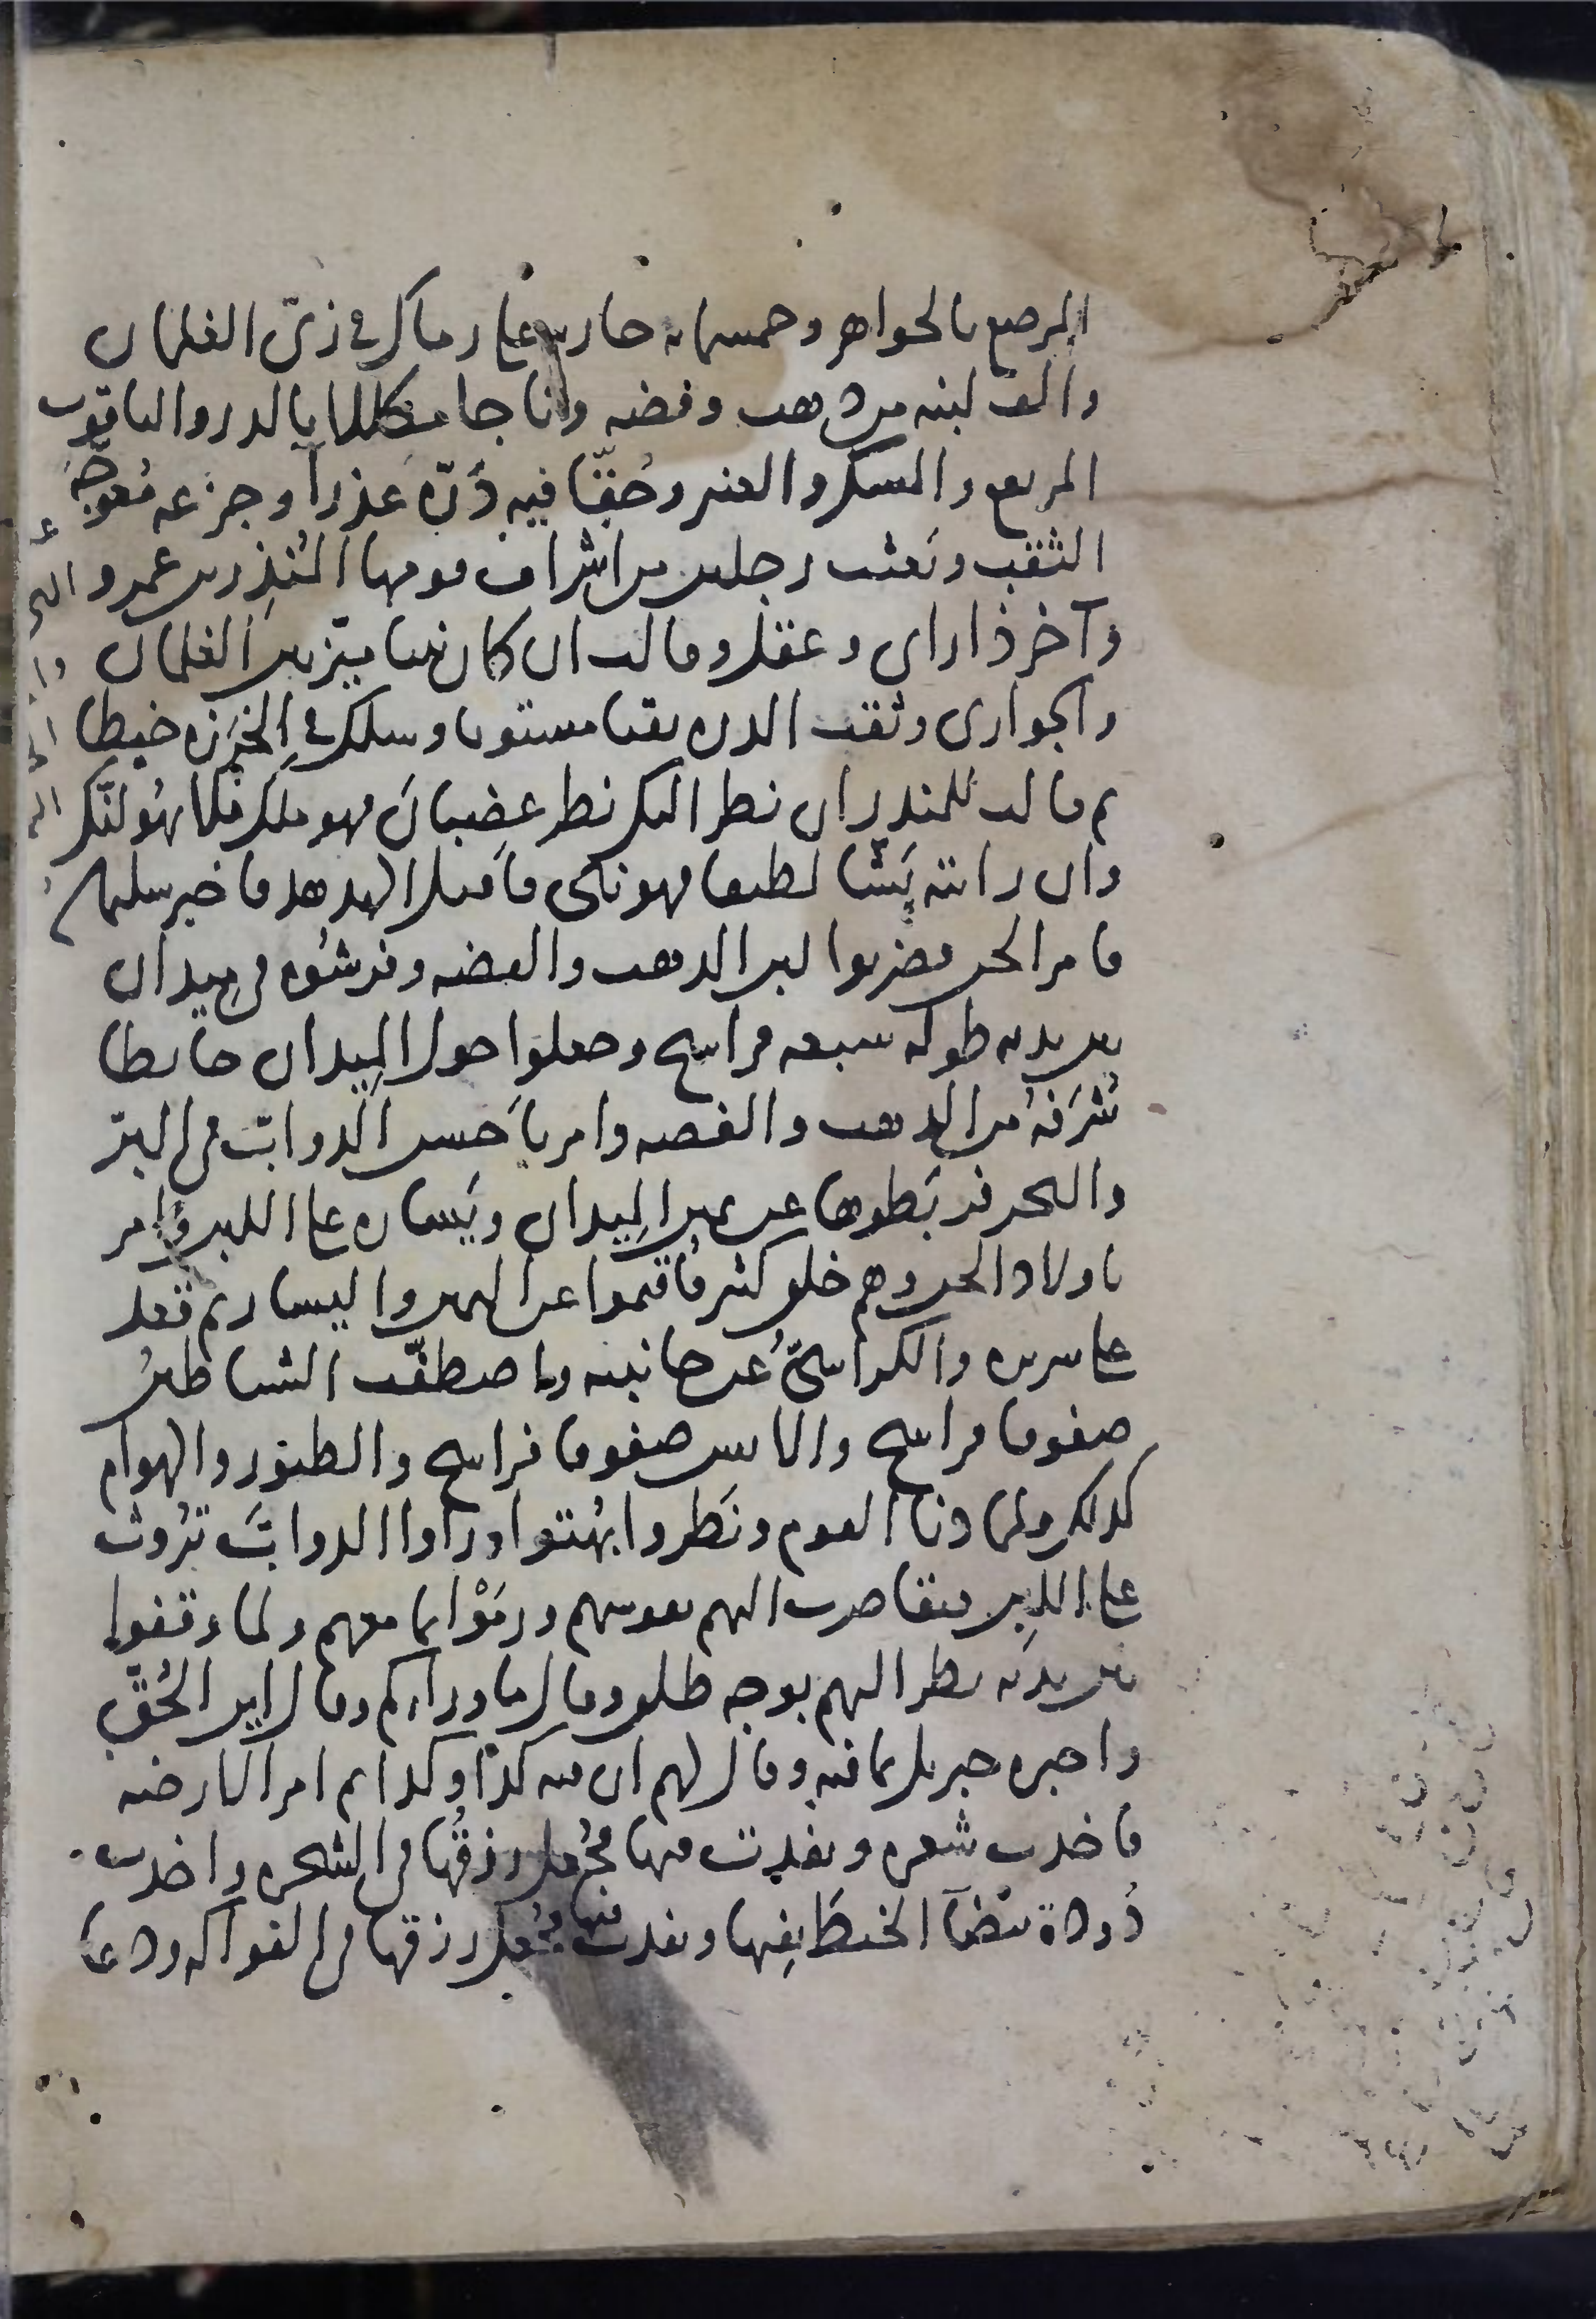 المرصع بالجواهر وخمسمايه جاريه على رماك في زي الغلمان
والف لبنه من ذهب وفضه وتاجا مكللا بالدر والياقوت
المرتفع والمسك والعنبر وحقا فيه درة عذرآ وجزعه معوجة
الثقب وبعثت رجلين من اشراف قومها المنذر بن عمرو
وآخر ذا راى وعقل وقالت ان كان نبيا ميز بين الغلمان
والجوارى وثقب الدره ثقبا مستويا وسلك في الخرزه خيطا
ثم قالت للمنذر ان نظر اليك نظر غضبان فهو ملك فلا يهولنك
وان رايته بشا لطيفا فهو نبي فاقبل الهدهد فاخبر سليمن
فامر الجن فضربوا لبن الذهب والفضه وفرشوه في ميدان
بين يديه طوله سبعه فراسخ وجعلوا حول الميدان حايطا
شرفه من الذهب والفضه وامر باحسن الدواب في البر
والبحر فربطوها عن يمين الميدان ويساره على اللبن وامر
باولاد الجن وهم خلق كثير فاقيموا عن اليمين واليسار ثم قعد
على سريره والكراسي عن جانبيه واصطفت الشياطين
صفوفا فراسخ والانس صفوفا فراسخ والطيور والهوام
كذلك ولما دنا القوم ونظروا بهتوا وراوا الدواب تروث
على اللبن فتقاصرت اليهم نفوسهم ورموا بما معهم ولما وقفوا
بين يديه نظر اليهم بوجه طلق وقال ما وراكم وقال اين الحق
واخبره جبريل بما فيه وقال لهم ان فيه كذا وكذا ثم امر الارضه
فاخذت شعره ونفذت فيها فجعل رزقها في الشجره واخذت
دودة بيضآ الخيط بفيها ونفذت فيها فجعل رزقها في الفواكه ودعا